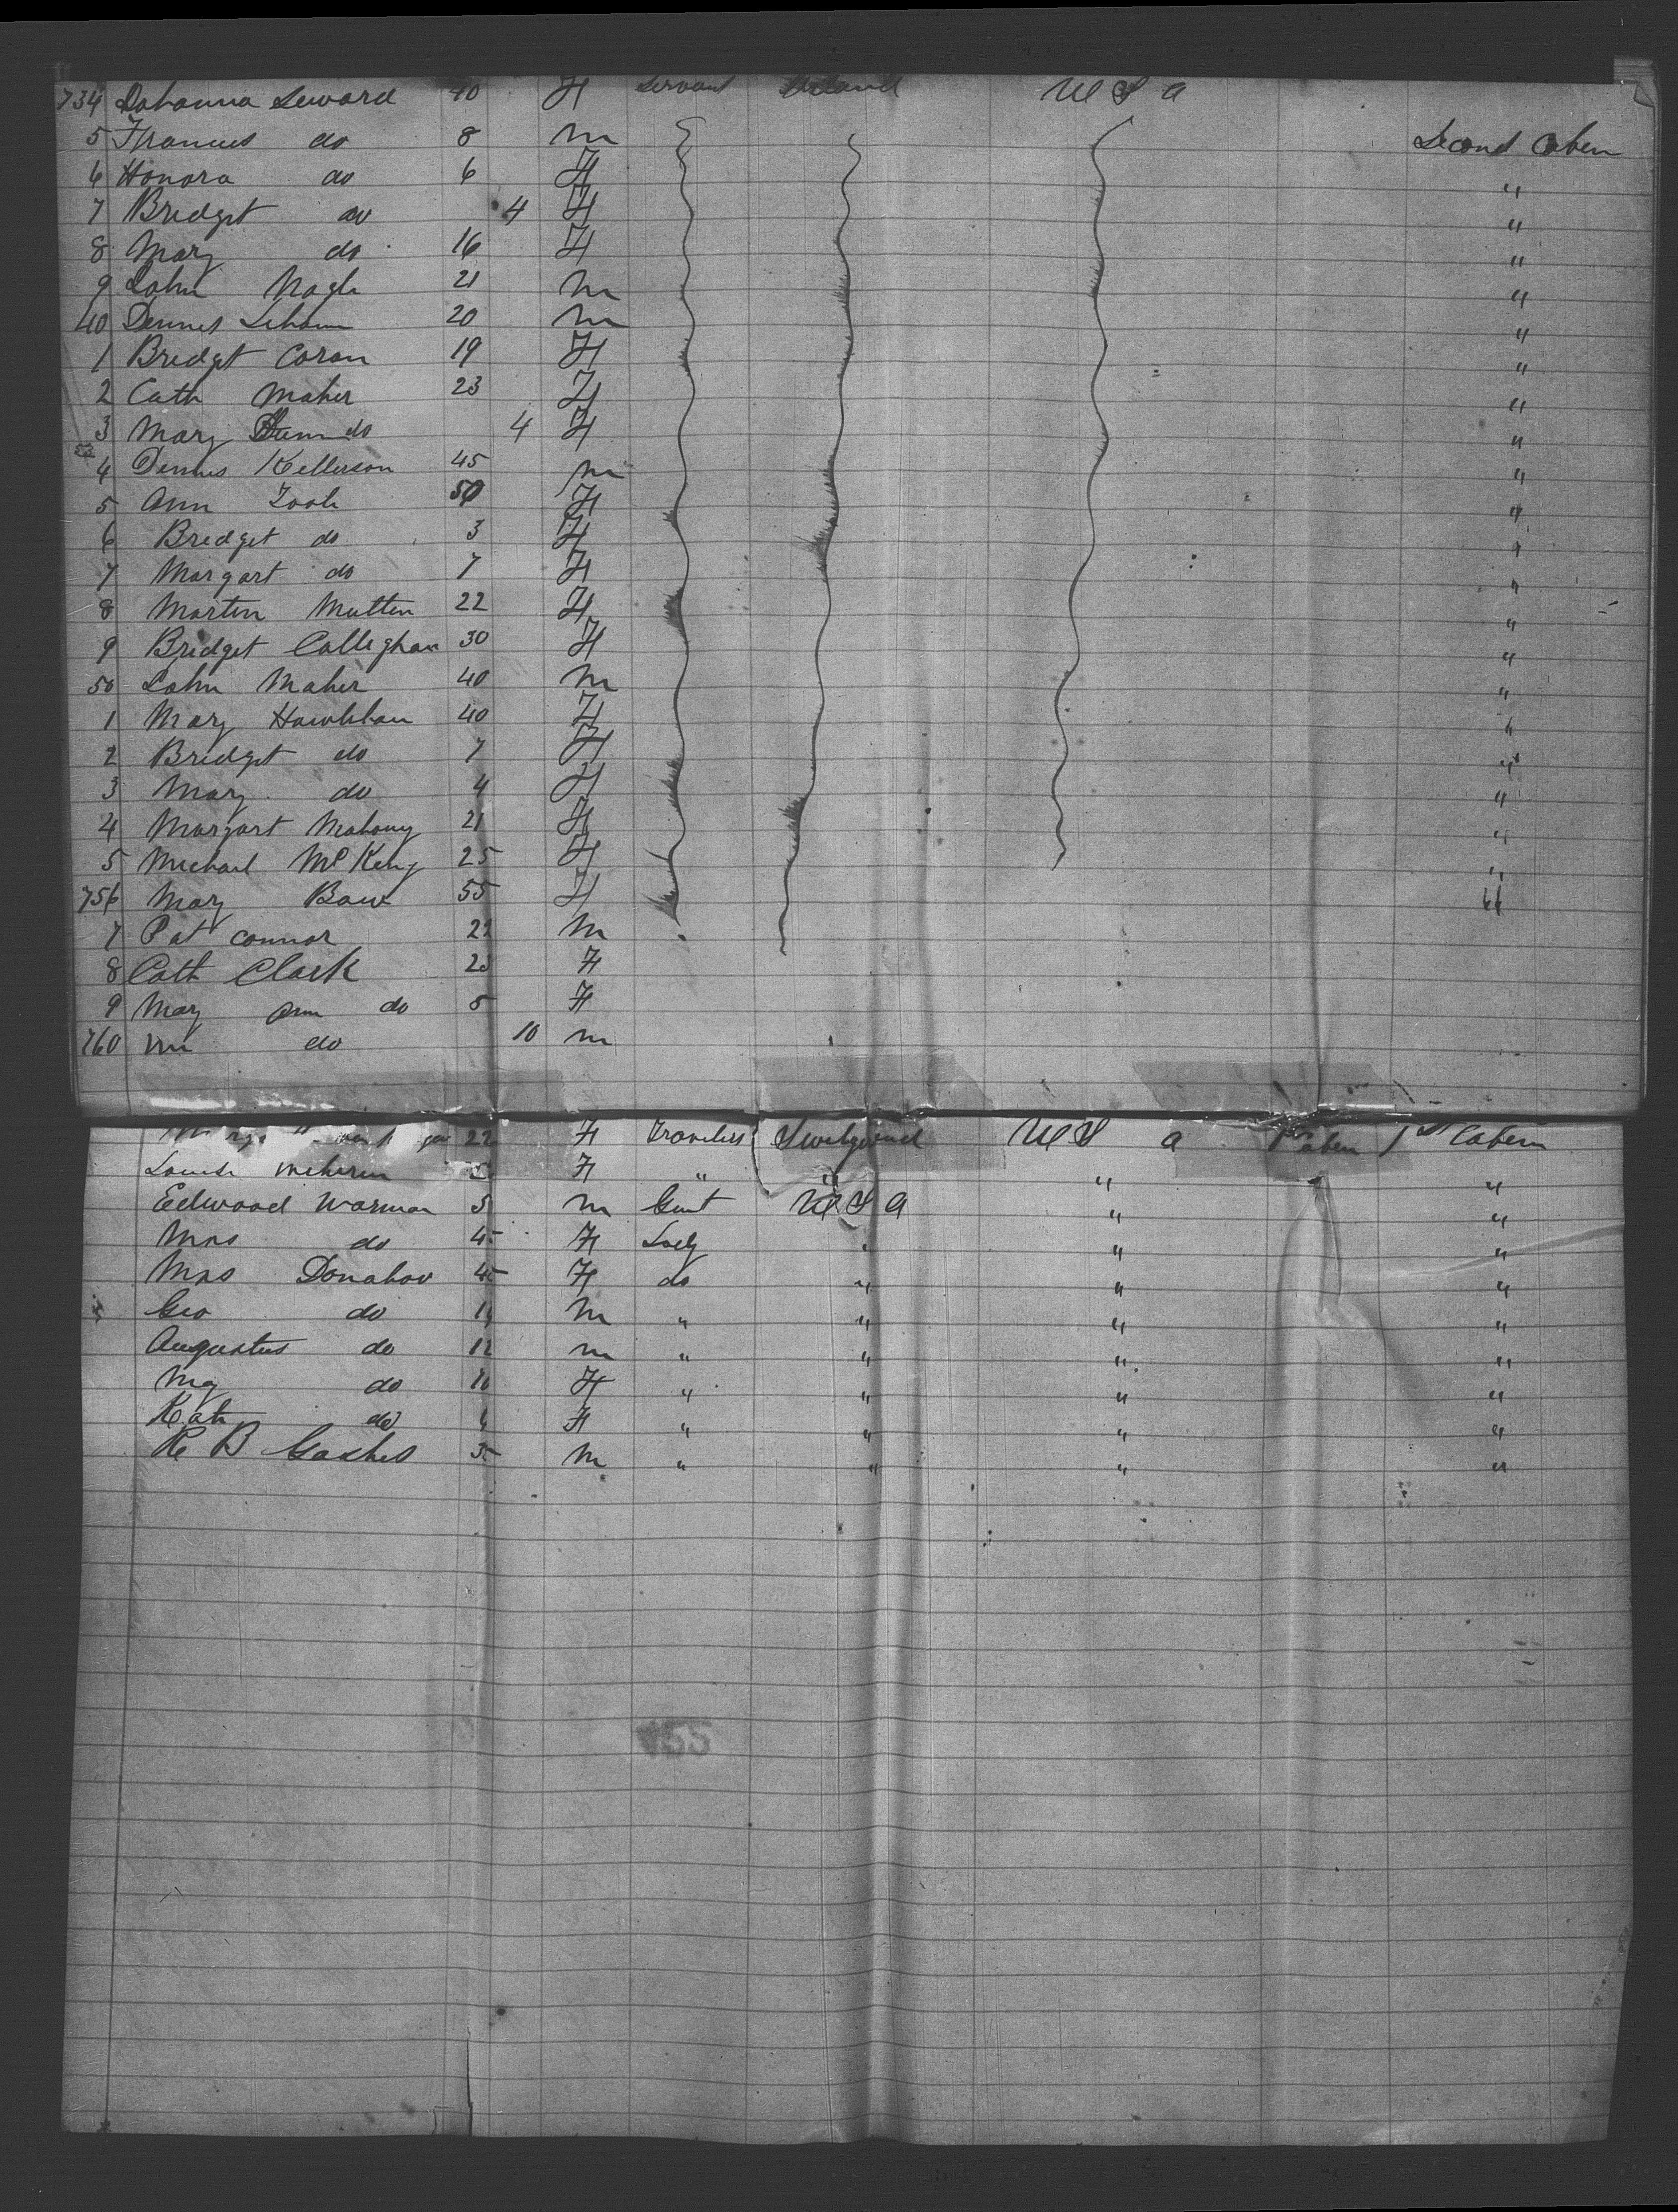 734 Johanna Seward 40 F Servant Ireland U S a
5 Francis do 8 m Second Caben
6 Honora do 6 F "
7 Bridget do 4 F "
8 Mary do 16 F "
9 John Nagle 21 m "
40 Dennes 20 m "
1 Bridget Coran 19 F "
2 Cath Maher 23 F "
3 Mary do 4 F "
4 Dennis Kellerson 45 m "
5 Ann Toole 50 F "
6 Bridget do 3 F "
7 Margart do 7 F "
8 Martin Mutten 22 F "
9 Bridget Calleghan 30 F "
50 John Maher 40 m "
1 Mary 40 F "
2 Bridget do 7 F "
3 Mary do 4 F "
4 Margart Mahony 21 F "
5 Michael 25 F "
756 Mary 55 F "
7 Pat Connor 22 m
8 Cath Clark 23 F
9 Mary Ann do 5 F
760 Wm do 10 m
22 F Travelers U S a Caben 1st Caben
F " " " "
Edwood Warman m Gent U S a " "
Mrs do F Lady " " "
Mrs Donahov F do " " "
Geo do m " " " "
Augustus do 12 m " " " "
do F " " " "
Kate do F " " " "
m " " " "
155